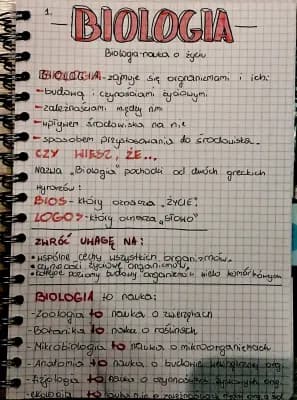 1.
BIOLOGIA
Biologia-nauka o życiu
BIOLOGIA-zajmuje się organizmami i ich:
-budową i czynnościami życiowymi
-zależnościami między nimi
-wpływem środowiska na nie
-sposobem przystosowania do środowiska.
CZY WIESZ, ŻE...
Nazwa „Biologia" pochodzi od dwóch greckich
wyrazów:
BIOS-który oznacza „ŻYCIE".
LOGOS-który oznacza „SŁOWO"
ZWRÓĆ UWAGĘ NA:
•wspólne cechy wszystkich organizmów,
•czynności życiowe organizmów,
poziomy budowy organizmu wielokomórkowych
BIOLOGIA to nauka:
-Zoologia to nauka o zwierzętach
-Botanika to nauka o roślinach
-Mikrobiologia to nauka o mikroorganizmach
-Anatomia to nauka o budowie wewnętrznej org.
-fizjologia to nauka o czynnościach życiowych org.
-ekologia to